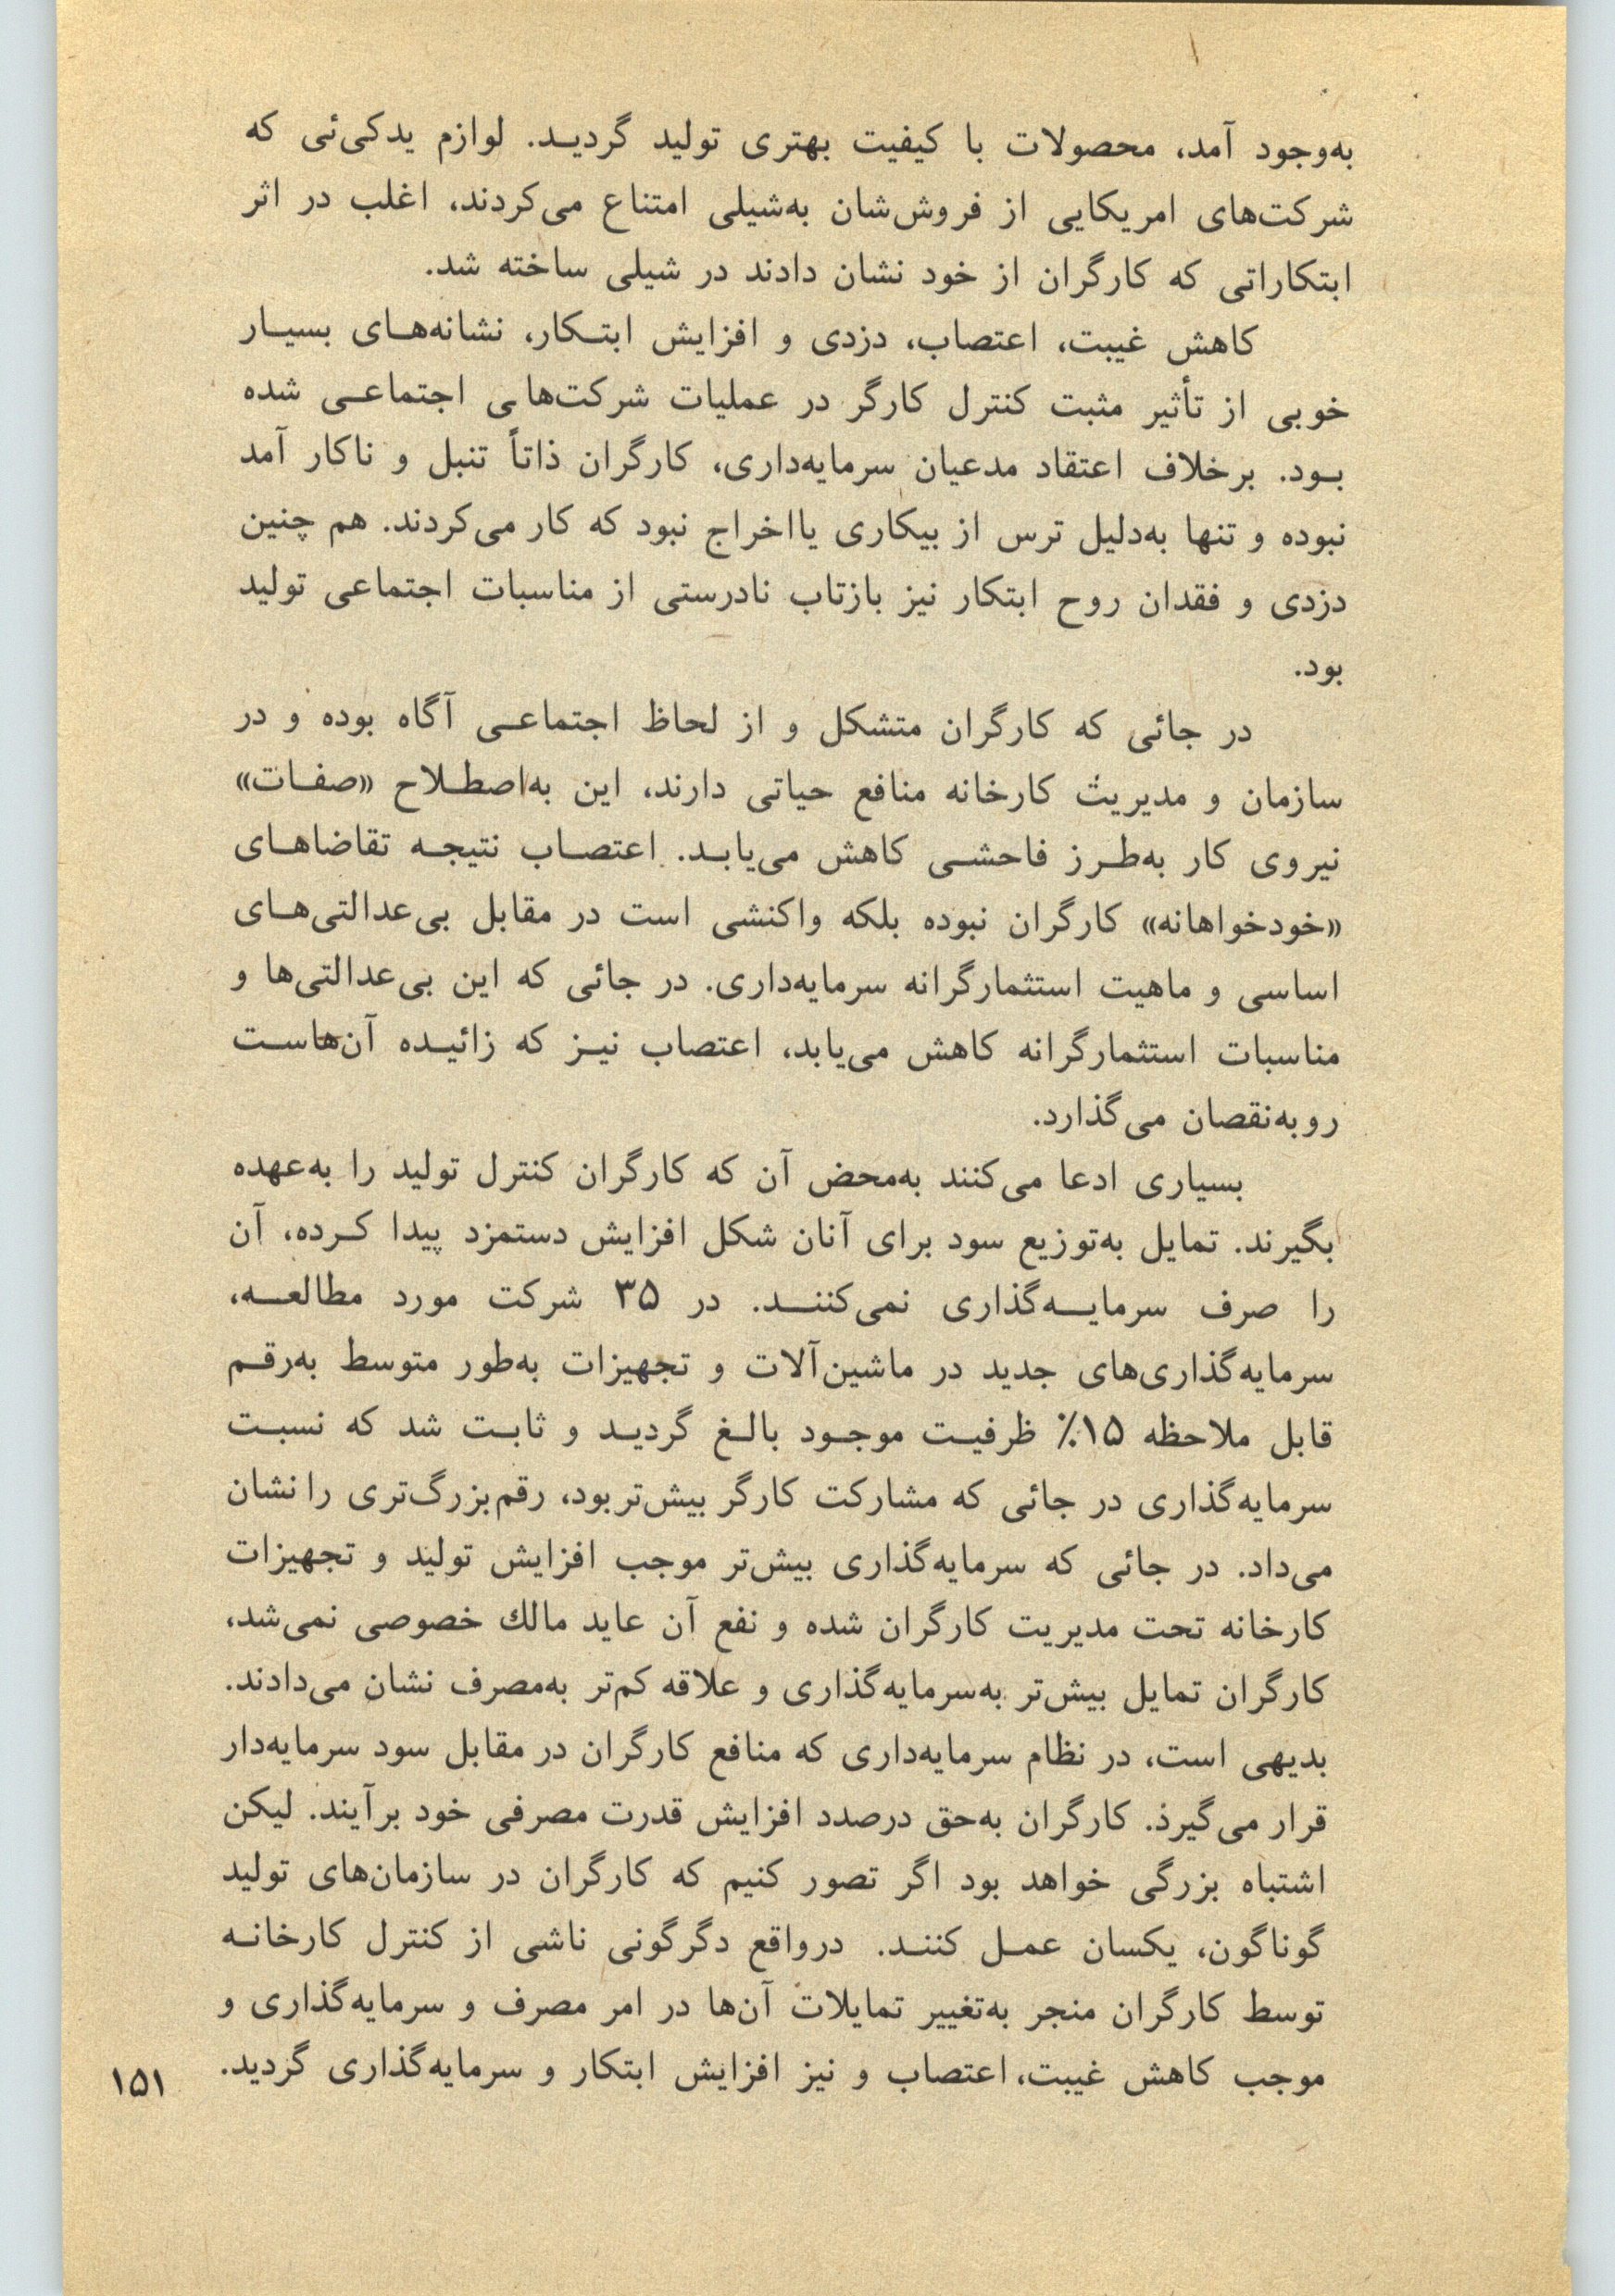 به‌وجود آمد، محصولات با کیفیت بهتری تولید گردید. لوازم یدکی‌ئی که
شرکت‌های امریکایی از فروش‌شان به‌شیلی امتناع می‌کردند، اغلب در اثر
ابتکاراتی که کارگران از خود نشان دادند در شیلی ساخته شد.
کاهش غیبت، اعتصاب، دزدی و افزایش ابتکار، نشانه‌های بسیار
خوبی از تأثیر مثبت کنترل کارگر در عملیات شرکت‌های اجتماعی شده
بود. برخلاف اعتقاد مدعیان سرمایه‌داری، کارگران ذاتاً تنبل و ناکار آمد
نبوده و تنها به‌دلیل ترس از بیکاری یا اخراج نبود که کار می‌کردند. هم چنین
دزدی و فقدان روح ابتکار نیز بازتاب نادرستی از مناسبات اجتماعی تولید
بود.
در جائی که کارگران متشکل و از لحاظ اجتماعی آگاه بوده و در
سازمان و مدیریت کارخانه منافع حیاتی دارند، این به‌اصطلاح «صفات»
نیروی کار به‌طرز فاحشی کاهش می‌یابد. اعتصاب نتیجه تقاضاهای
«خودخواهانه» کارگران نبوده بلکه واکنشی است در مقابل بی‌عدالتی‌های
اساسی و ماهیت استثمارگرانه سرمایه‌داری. در جائی که این بی‌عدالتی‌ها و
مناسبات استثمارگرانه کاهش می‌یابد، اعتصاب نیز که زائیده آن‌هاست
روبه‌نقصان می‌گذارد.
بسیاری ادعا می‌کنند به‌محض آن که کارگران کنترل تولید را به‌عهده
بگیرند. تمایل به‌توزیع سود برای آنان شکل افزایش دستمزد پیدا کرده، آن
را صرف سرمایه‌گذاری نمی‌کنند. در ۳۵ شرکت مورد مطالعه،
سرمایه‌گذاری‌های جدید در ماشین‌آلات و تجهیزات به‌طور متوسط به‌رقم
قابل ملاحظه ۱۵٪ ظرفیت موجود بالغ گردید و ثابت شد که نسبت
سرمایه‌گذاری در جائی که مشارکت کارگر بیش‌تر بود، رقم بزرگ‌تری را نشان
می‌داد. در جائی که سرمایه‌گذاری بیش‌تر موجب افزایش تولید و تجهیزات
کارخانه تحت مدیریت کارگران شده و نفع آن عاید مالك خصوصی نمی‌شد،
کارگران تمایل بیش‌تر به‌سرمایه‌گذاری و علاقه کم‌تر به‌مصرف نشان می‌دادند.
بدیهی است، در نظام سرمایه‌داری که منافع کارگران در مقابل سود سرمایه‌دار
قرار می‌گیرد. کارگران به‌حق درصدد افزایش قدرت مصرفی خود برآیند. لیکن
اشتباه بزرگی خواهد بود اگر تصور کنیم که کارگران در سازمان‌های تولید
گوناگون، یکسان عمل کنند. درواقع دگرگونی ناشی از کنترل کارخانه
توسط کارگران منجر به‌تغییر تمایلات آن‌ها در امر مصرف و سرمایه‌گذاری و
موجب کاهش غیبت، اعتصاب و نیز افزایش ابتکار و سرمایه‌گذاری گردید.
۱۵۱